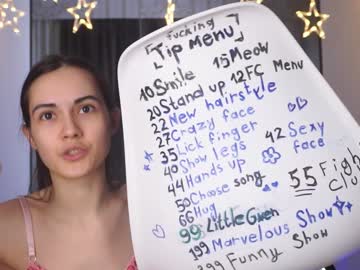 fucking
[Tip Menu]
10 Smile 15 Meow
20 Stand up 12 FC Menu
22 New hairstyle
27 Crazy face
35 Lick finger
40 Show legs 42 Sexy face
44 Hands up
50 Choose song 55 Fight Club
66 Hug
99 Little Green
199 Marvelous Show
299 Funny Show